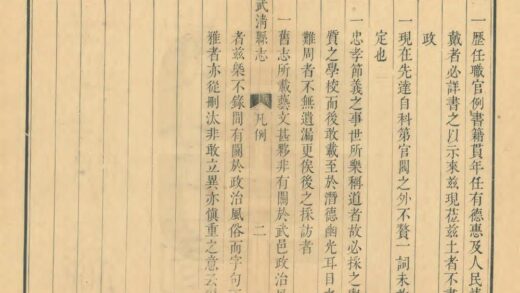 一歷任職官例書籍貫年任有德惠及人民
戴者必詳書之以示來茲現莅茲土者不書
政
一現在先達自科第官閥之外不贅一詞未
定也
一忠孝節義之事世所樂稱道者故必採之
質之學校而後敢載至於潛德幽光耳目
難周者不無遺漏更俟後之採訪者
一舊志所載藝文甚夥非有關於武邑政治
武清縣志 凡例 二
者茲槩不錄間有關於政治風俗而字句
雅者亦從刪汰非敢立異亦慎重之意云